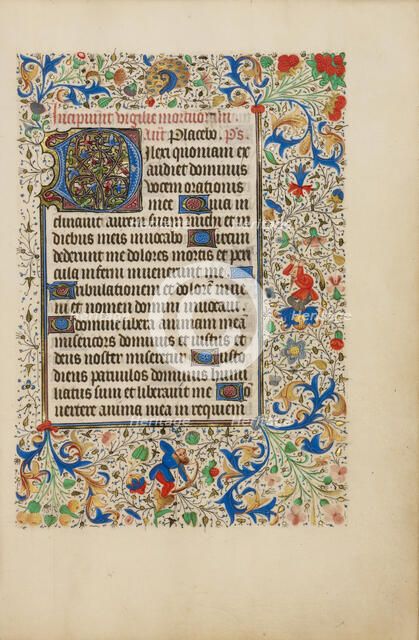 Incipiunt vigilie mortuorum
ant Placebo. Ps.
Dilexi quoniam ex
audiet dominus
vocem orationis
mee Quia in
clinavit aurem suam michi et in
diebus meis invocabo Circum
dederunt me dolores mortis et peri
cula inferni invenerunt me
Tribulationem et dolorē inve
ni et nomen domini invocavi.
O domine libera animam meā
misericors dominus et iustus et
deus noster miseretur Custo
diens parvulos dominus humi
liatus sum et liberavit me Co
nvertere anima mea in requiem
heritage
Images